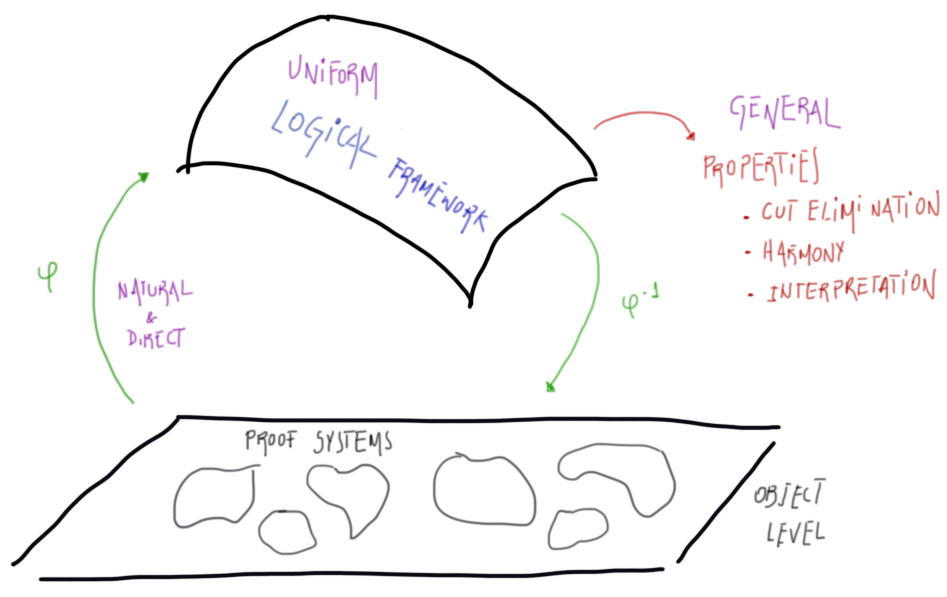 UNIFORM
LOGICAL FRAMEWORK
GENERAL
PROPERTIES
- CUT ELIMINATION
- HARMONY
- INTERPRETATION
φ
NATURAL
&
DIRECT
φ-1
PROOF SYSTEMS
OBJECT
LEVEL